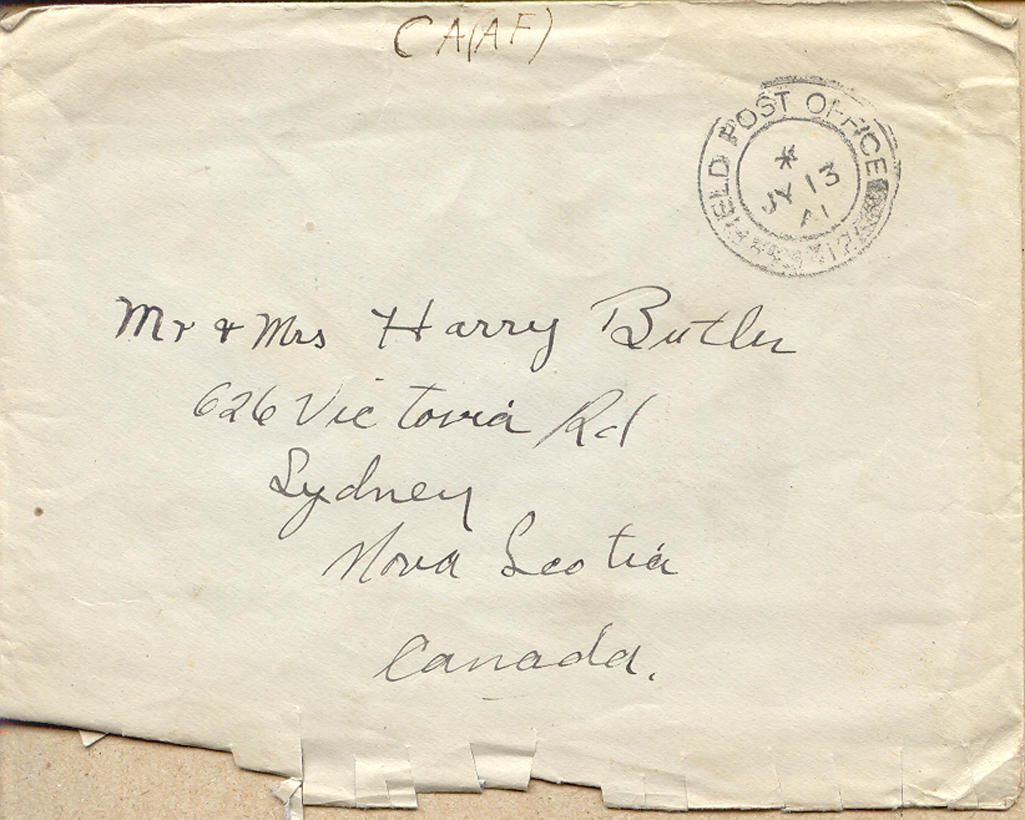 CA(AF)
FIELD POST OFFICE
*
JY 13
Mr & Mrs Harry Butler
626 Victoria Rd
Sydney
Nova Scotia
Canada.